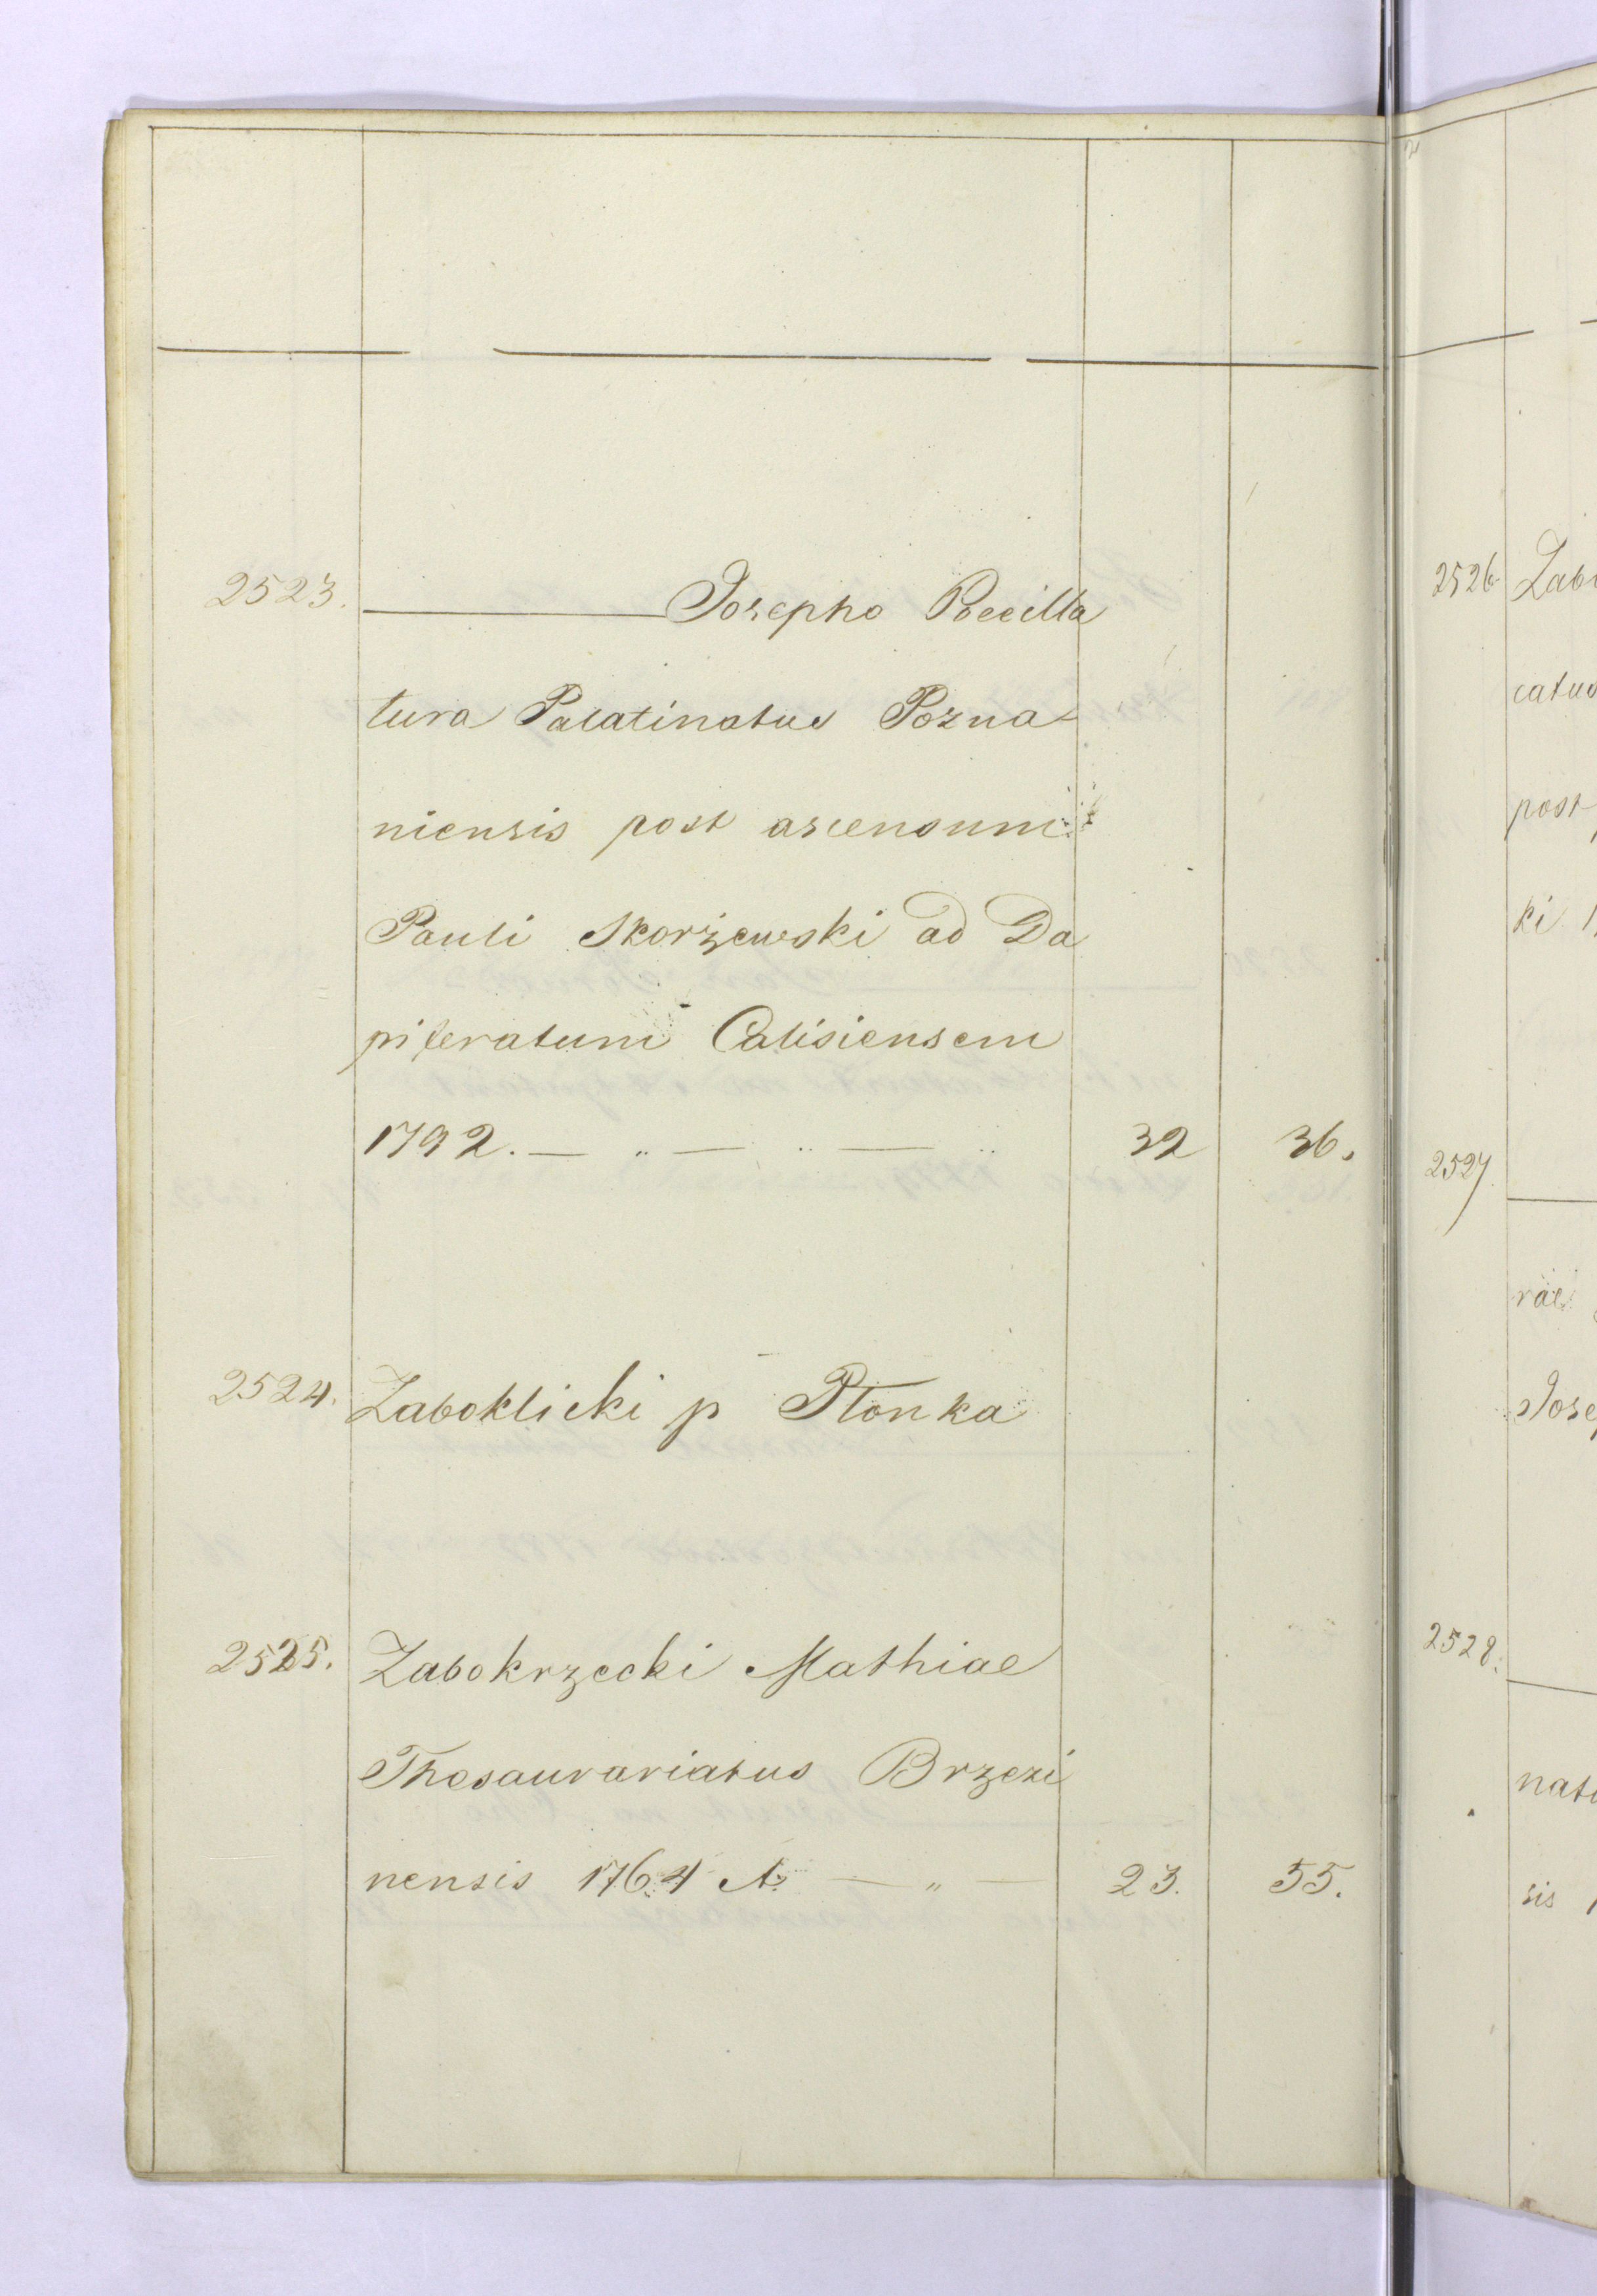 2523. Josepho Pocilla
tura Palatinatus Pozna
niensis post ascensum
Pauli Skorżewski ad Da
piferatum Calisiensem
1792. — „ — „ — „ 32 36.
2524. Zaboklicki p Płonka
2525. Zabokrzecki Mathiae
Thesaurariatus Brzezi
nensis 1764 A. — „ — 23. 55.
2526 Zabo
catus
post
ki
2527
rae
Jose
2528.
nat
sis